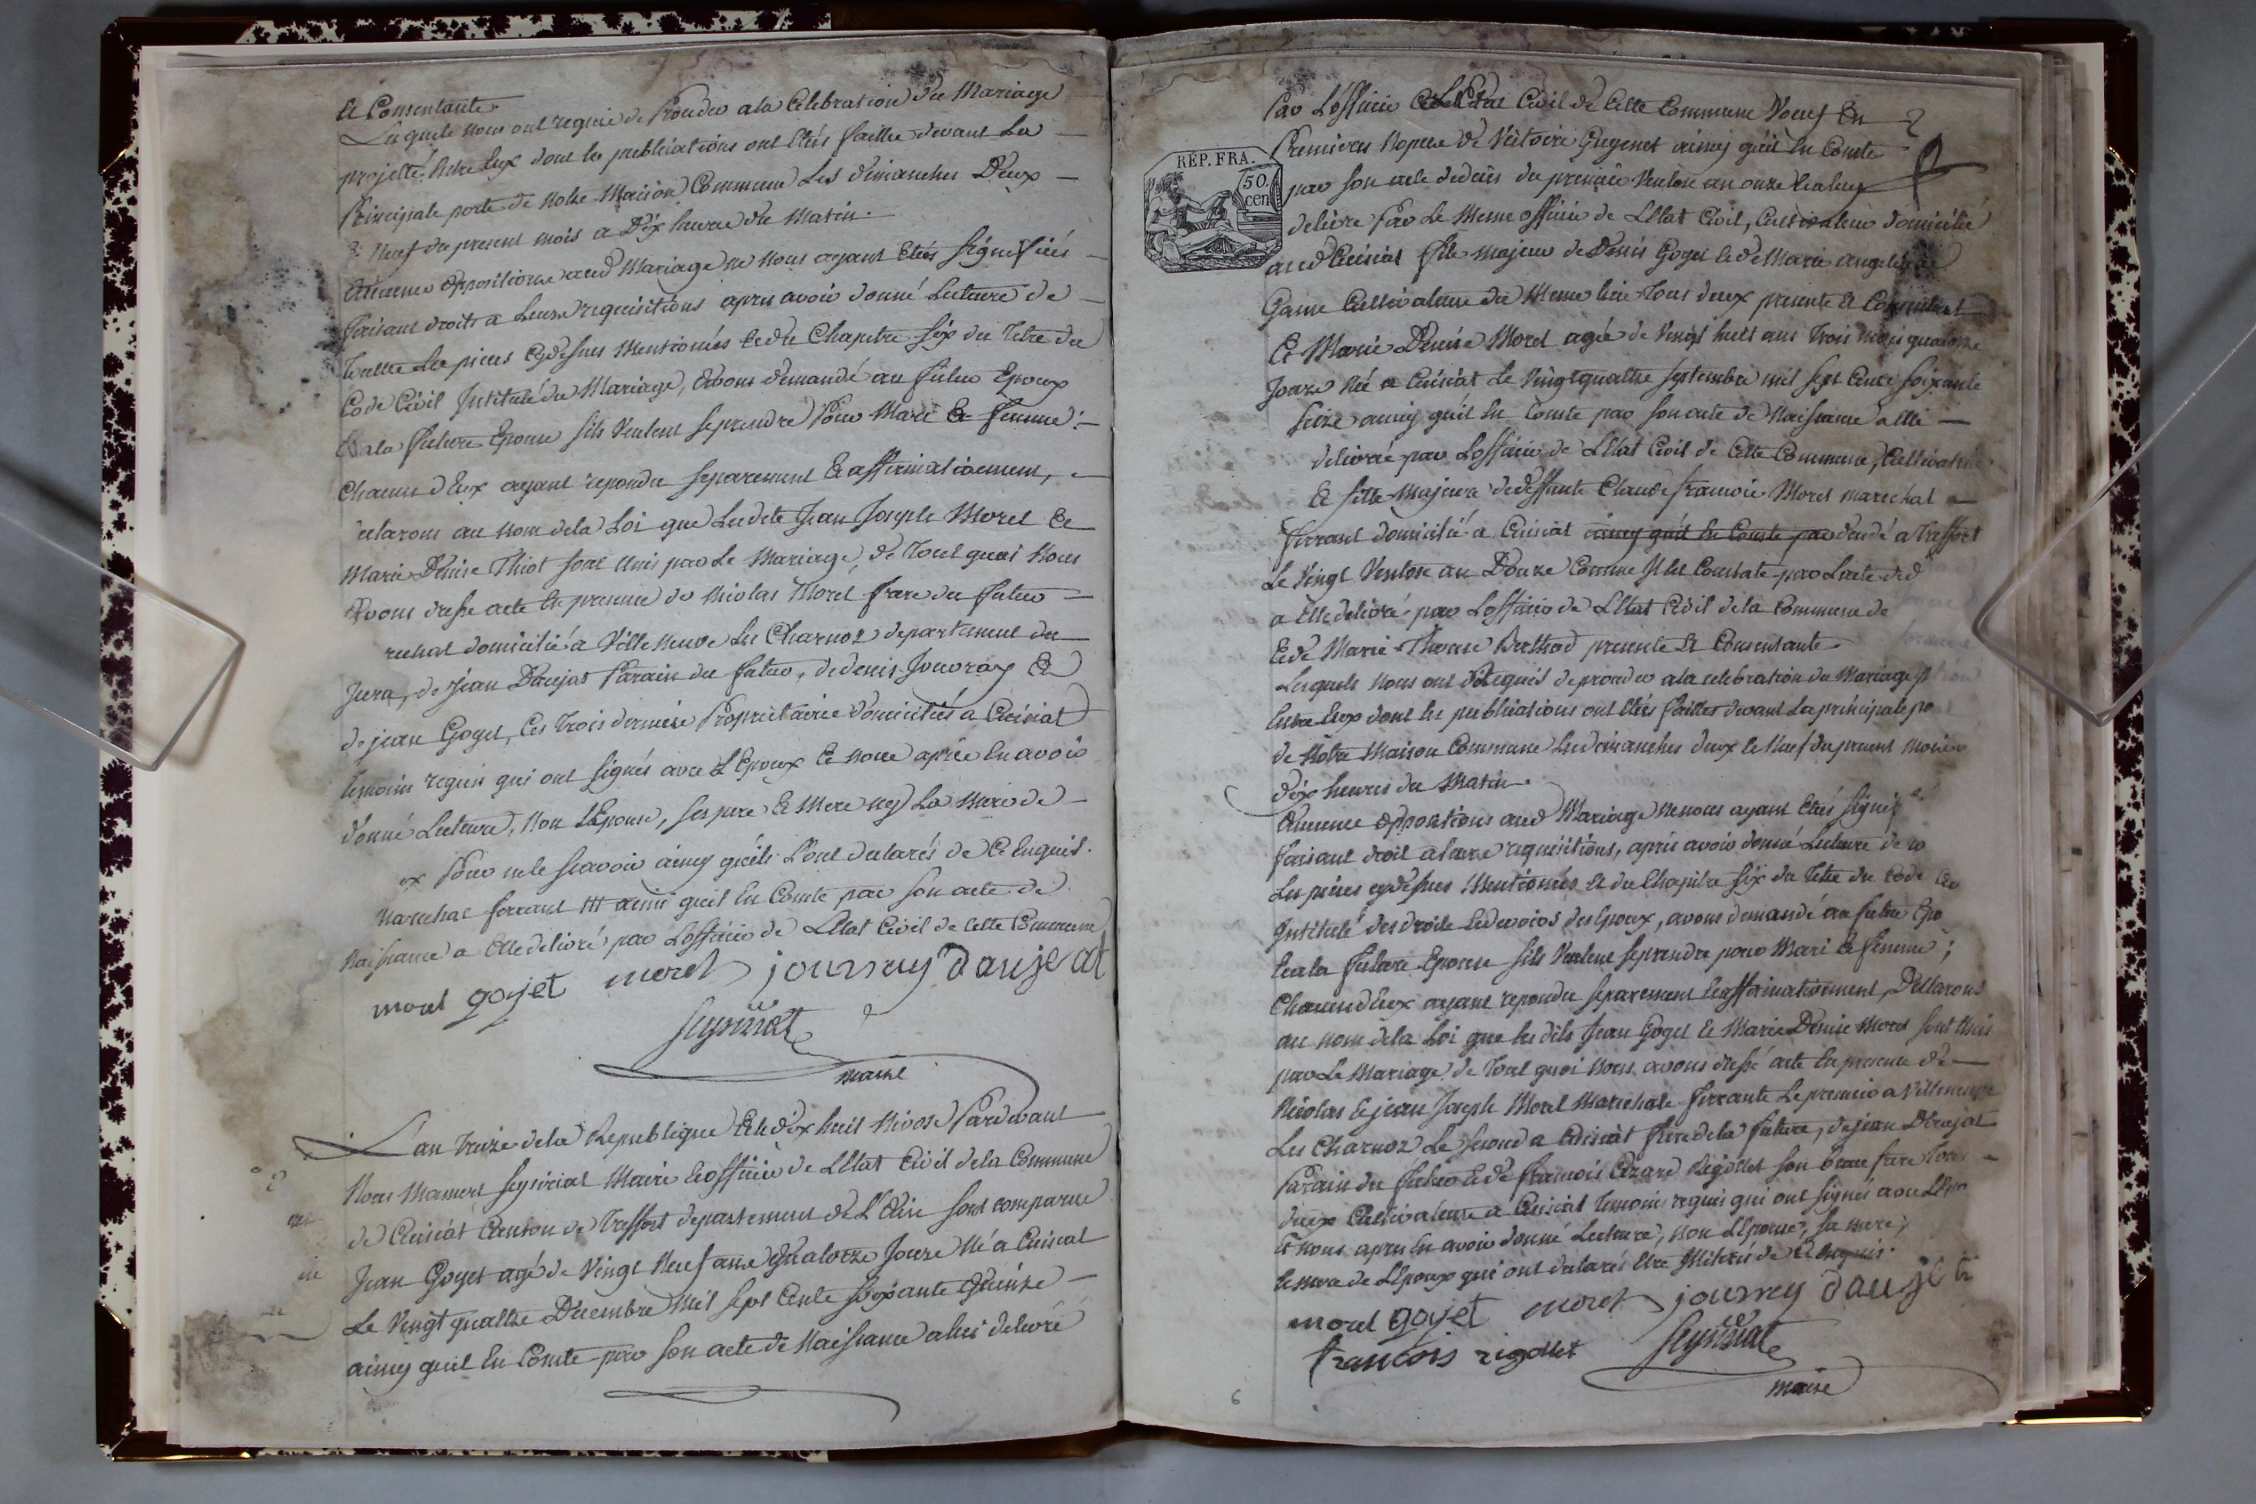 Et Consentante.
Lesquels nous ont requis de Proceder a la Celebration du Mariage
projetté Entre Eux dont les publications ont Etés faittes devant La
Principale porte de notre Maison Commune Les dimanches Deux
& Neuf du present mois a Dix heures du Matin.
Aucunes Oppositions aud Mariage ne nous ayant Etées Signifiées
faisant droits a Leurs requisitions apres avoir donné Lecture de
Toutes Les pieces Cydessus Mentionnés Et du Chapitre Six du Titre du
Code Civil Intitulé du Mariage, avons demandé au futur Epoux
Et a la future Epouse sils Veulent se prendre Pour Mari Et femme:
Chacun d'Eux ayant repondu separement Et affirmativement,
declarons au nom de la Loi que Lesdits Jean Joseph Morel Et
Marie Denise Thiot sont Unis par Le Mariage, de Tout quoi Nous
avons dressé acte En presence de Nicolas Morel frere du futur
rechal domicilié a Ville neuve Les Charnoz departement du
Jura, de Jean Daujat Parain du futur, de denis Jouvray Et
de jean Goyet, Ces Trois derniers Proprietaires domiciliés a Cuisiat
temoins requis qui ont signés avec L'Epoux Et nous apres En avoir
donné Lecture, Non L'Epouse, ses pere Et Mere ny La Mere de
Pour ne le scavoir ainsy quils L'ont declarés de Ce Enquis.
Marechal ferrant ainsi quil En Conste par son acte de
Naissance a Elle delivré par Lofficier de LEtat Civil de Cette Commune
morel goyet morel journey daujat
Seyssiriat
maire
L'an Treize de la Republique Et le dix huit Nivose Pardevant
Nous Mamert Seyssiriat Maire Et officier de LEtat Civil de la Commune
de Cuisiat Canton de Treffort departement de L'Ain sont comparus
Jean Goyet agé de Vingt Neuf ans Quatorze Jours Né a Cuisiat
Le Vingt quattre Decembre Mil sept Cents soixante Quinze
ainsy quil En Conste par son acte de Naissance a lui delivré
Par Lofficier de LEtat Civil de Cette Commune Veuf En
Premieres Nopces de Victoire Guyenet ainsy quil En Conste
RÉP. FRA.
50 cen
par son acte de deces du premier Ventose an onze
delivré Par Le Meme officier de LEtat Civil, Cultivateur domicilié
aud Cuisiat fils Majeur de Denis Goyet Et de Marie
Cultivateurs du Meme lieu Tous deux presents Et Consentants
Et Marie Denise Morel agée de Vingt huit ans Trois Mois quatorze
Jours Née a Cuisiat Le Vingt quattre septembre mil sept Cents soixante
seize ainsy quil En Conste par son acte de Naissance a Elle
delivré par Lofficier de LEtat Civil de Cette Commune, Cultivatrice
Et fille Majeure de deffunte Claude francois Morel marechal
ferrant domicilié a Cuisiat ainsy quil En Conste par decedé a Treffort
Le Vingt Ventose an Douze Comme Il Est Constaté par Lacte de d
a Elle delivré par Lofficier de LEtat Civil de la Commune de
Et de Marie Therese Berthod presente Et Consentante
Lesquels nous ont requis de proceder a la celebration du Mariage
Entre Eux dont les publications ont Etés faittes devant La principale po
de Notre Maison Commune Les dimanches deux Et Neuf du present Mois
dix heures du Matin.
Aucunes Oppositions aud Mariage Ne nous ayant Etés Signif
faisant droit a leurs requisitions, apres avoir donné Lecture de
Les pieces cydessus Mentionnés Et du Chapitre Six du Titre du Code
Intitulé des droits Et devoirs des Epoux, avons demandé au futur Epo
Et a la future Epouse sils Veulent se prendre pour Mari Et femme;
Chacun d'Eux ayant repondu separement Et affirmativement, Declarons
au nom de la Loi que les dits Jean Goyet Et Marie Denise Morel sont Unis
par Le Mariage de Tout quoi Nous avons dressé acte En presence de
Nicolas Et jean Joseph Morel Marechals ferrants Le premier a Villeneuve
Les Charnoz Le second a Cuisiat frere de la future, de jean Daujat
Parain du futur Et de francois Cezard Rigollet son beau frere Tous
deux Cultivateurs a Cuisiat Temoins requis qui ont signés avec LEpo
Et nous apres En avoir donné Lecture, non LEpouse, sa mere,
Et mere de LEpoux qui ont declarés Etre Illiteres de Ce Enquis.
morel goyet morel journey daujat
francois rigollet Seyssiriat
maire
6